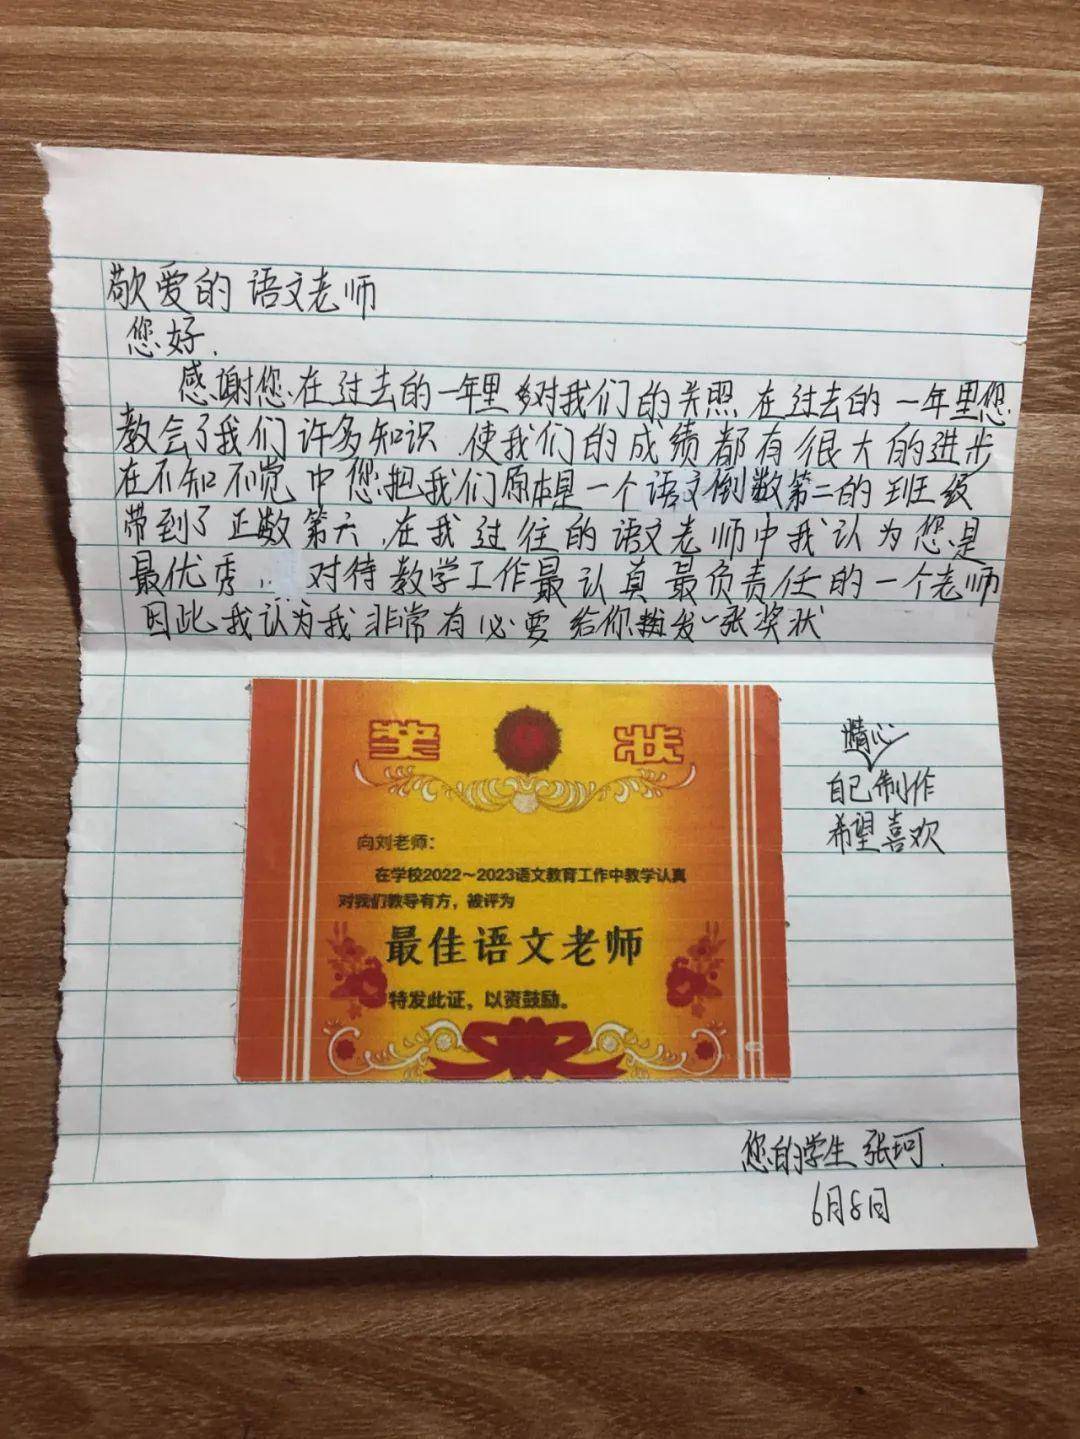 敬爱的语文老师
您好.
感谢您在过去的一年里对我们的关照 在过去的一年里您
教会了我们许多知识.使我们的成绩都有很大的进步
在不知不觉中您把我们原本是一个语文倒数第二的班级
带到了正数第六.在我过往的语文老师中我认为您是
最优秀.对待教学工作最认真最负责任的一个老师
因此我认为我非常有必要给你发一张奖状
奖状
向刘老师：
在学校2022～2023语文教育工作中教学认真
对我们教导有方，被评为
最佳语文老师
特发此证，以资鼓励。
精心
自己制作
希望喜欢
您的学生 张珂.
6月8日